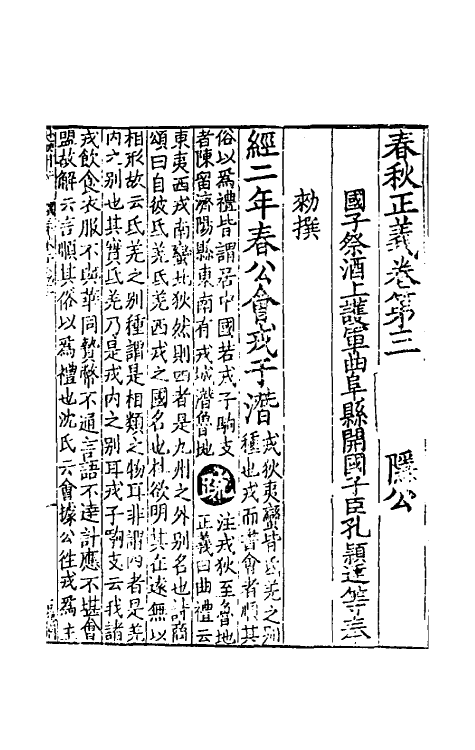 春秋正義卷第三 隱公
國子祭酒上護軍曲阜縣開國子臣孔穎達等奉
勑撰
經二年春公會戎于潛
戎狄夷蠻皆氐羌之別
種也戎而書會者順其
俗以爲禮皆謂居中國若戎子駒支
者陳留濟陽縣東南有戎城潛魯地
疏
注戎狄至魯地
正義曰曲禮云
東夷西戎南蠻北狄然則四者是九州之外別名也詩商
頌曰自彼氐羌氐羌西戎之國名也杜欲明其在遠無以
相形故云氐羌之別種謂是相類之物耳非謂四者是羌
內之別也其實氐羌乃是戎內之別耳戎子駒支云我諸
戎飲食衣服不與華同贄幣不通言語不達計應不堪會
盟故解云言順其俗以爲禮也沈氏云會據公往戎爲主